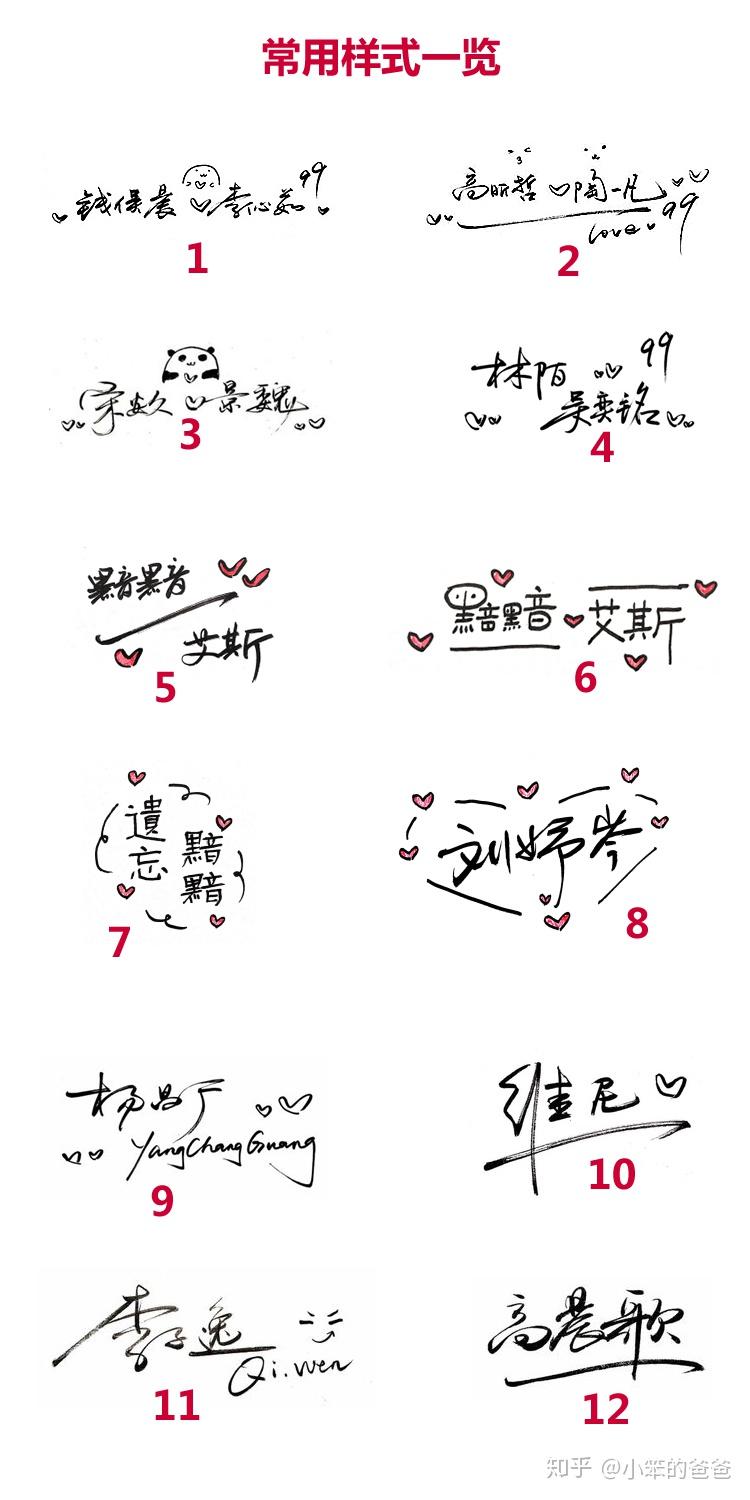 常用样式一览
錢保晨 李心茹 99
1
高昕哲 陶一凡
love 99
2
景魏
3
林陌 99
吴奕铭
4
黯黯
艾斯
5
黯黯 艾斯
6
遺忘
黯黯
7
刘婷岑
8
杨昌广
YangChangGuang
9
维尼
10
李子逸
Qi.wen
11
高晨歌
12
知乎 @小笨的爸爸